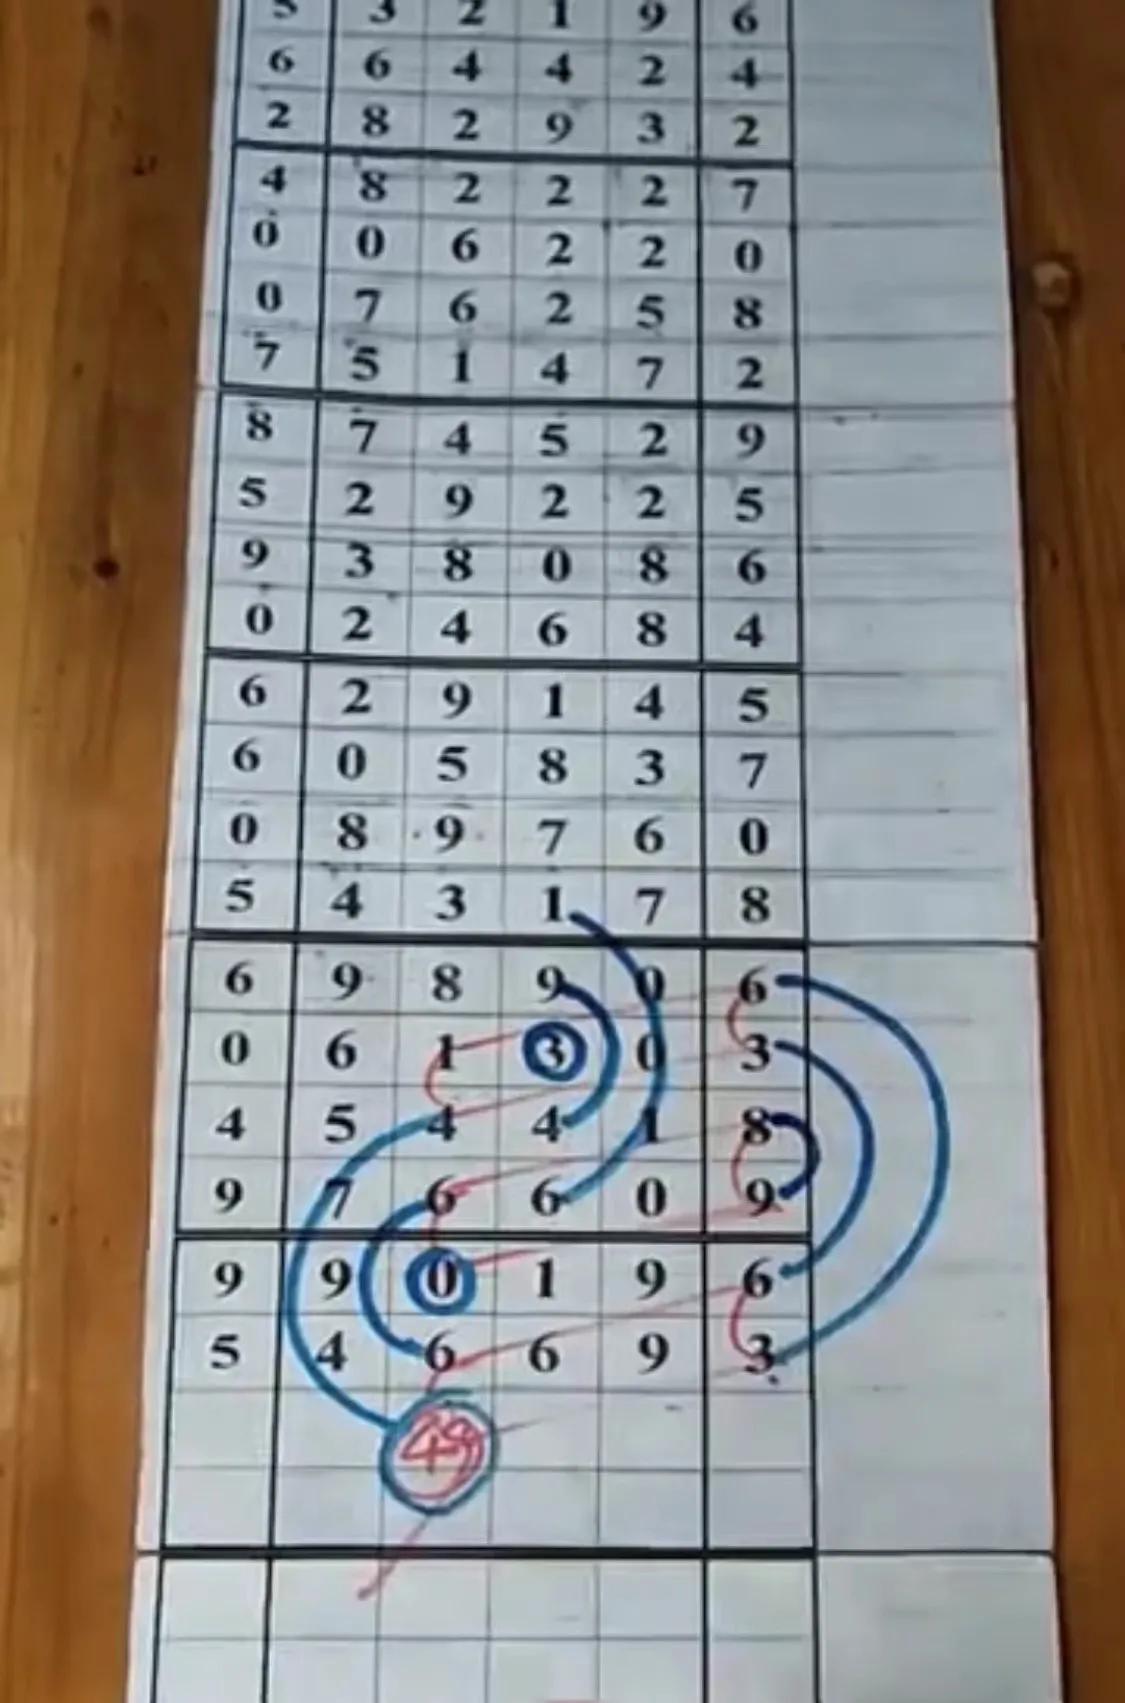 5 3 2 1 9 6
6 6 4 4 2 4
2 8 2 9 3 2
4 8 2 2 2 7
0 0 6 2 2 0
0 7 6 2 5 8
7 5 1 4 7 2
8 7 4 5 2 9
5 2 9 2 2 5
9 3 8 0 8 6
0 2 4 6 8 4
6 2 9 1 4 5
6 0 5 8 3 7
0 8 9 7 6 0
5 4 3 1 7 8
6 9 8 9 0 6
0 6 1 3 0 3
4 5 4 4 1 8
9 7 6 6 0 9
9 9 0 1 9 6
5 4 6 6 9 3
49